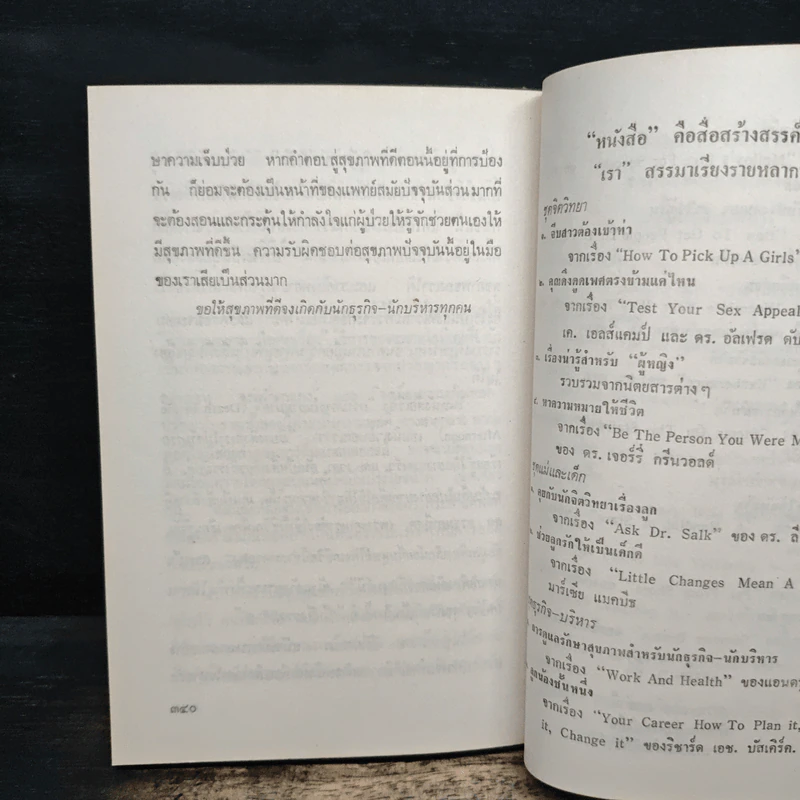 ษาความเจ็บป่วย หากคำตอบสู่สุขภาพที่ดีตอนนี้อยู่ที่การป้อง
กัน ก็ย่อมจะต้องเป็นหน้าที่ของแพทย์สมัยปัจจุบันส่วนมากที่
จะต้องสอนและกระตุ้นให้กำลังใจแก่ผู้ป่วยให้รู้จักช่วยตนเองให้
มีสุขภาพที่ดีขึ้น ความรับผิดชอบต่อสุขภาพปัจจุบันนี้อยู่ในมือ
ของเราเสียเป็นส่วนมาก
ขอให้สุขภาพที่ดีจงเกิดกับนักธุรกิจ–นักบริหารทุกคน
๓๔๐
“หนังสือ” คือสื่อสร้างสรรค์
“เรา” สรรมาเรียงรายหลาก
ชุดจิตวิทยา
๑. จีบสาวต้องเข้าท่า
จากเรื่อง “How To Pick Up A Girls”
๒. คุณดึงดูดเพศตรงข้ามแค่ไหน
จากเรื่อง “Test Your Sex Appeal
เค. เอลส์แคมป์ และ ดร. อัลเฟรด ดับ
๓. เรื่องน่ารู้สำหรับ “ผู้หญิง”
รวบรวมจากนิตยสารต่างๆ
๔. หาความหมายให้ชีวิต
จากเรื่อง “Be The Person You Were M
ของ ดร. เจอร์รี่ กรีนวอลด์
ชุดแม่และเด็ก
คุยกับนักจิตวิทยาเรื่องลูก
จากเรื่อง “Ask Dr. Salk” ของ ดร. ลี
ช่วยลูกรักให้เป็นเด็กดี
จากเรื่อง “Little Changes Mean A
มาร์เซีย แมคบีช
ธุรกิจ–บริหาร
การดูแลรักษาสุขภาพสำหรับนักธุรกิจ–นักบริหาร
จากเรื่อง “Work And Health” ของแอนดร
ลูกน้องชั้นหนึ่ง
จากเรื่อง “Your Career How To Plan it,
it, Change it” ของริชาร์ด เอช. บัสเคิร์ค.